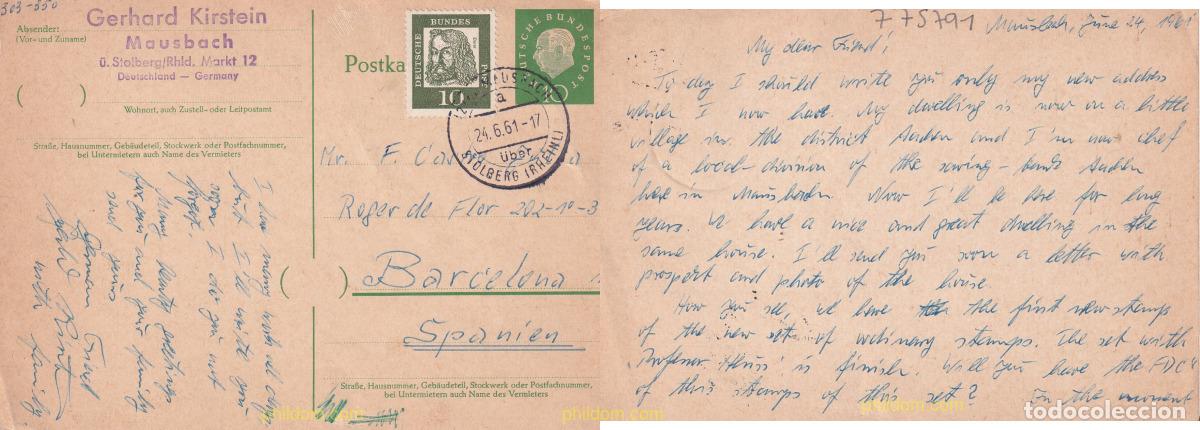 303-350
Absender:
(Vor- und Zuname)
Gerhard Kirstein
Mausbach
ü. Stolberg/Rhld. Markt 12
Deutschland — Germany
Wohnort, auch Zustell- oder Leitpostamt
Straße, Hausnummer, Gebäudeteil, Stockwerk oder Postfachnummer,
bei Untermietern auch Name des Vermieters
I have many work all days
but I'll write you
soon. I do you not
forget.
Many hearty greetings
for you and your family
send yours
German Friend
Gerhard Kirstein
with family
Postka
DEUTSCHE BUNDESPOST
10
DEUTSCHE BUNDESPOST
10
MAUSBACH
a
24.6.61-17
über
STOLBERG (RHEINL)
Mr. F.
Roger de Flor 202-10-3
Barcelona
Spanien
Straße, Hausnummer, Gebäudeteil, Stockwerk oder Postfachnummer,
bei Untermietern auch Name des Vermieters
phildom.com
775791
Mausbach, June 24, 1961
My dear Friend!
To day I should write you only my new address
which I now have. My dwelling is now on a little
village in the district Aachen and I'm now chef
of a local-division of the saving-bank Aachen
here in Mausbach. Now I'll be here for long
years. We have a nice and great dwelling in the
same house. I'll send you soon a letter with
prospect and photo of the house.
How you see, we have the first new stamps
of the new set of ordinary stamps. The set with
Professor Heuss is finish. Will you have the FDC's
of this stamps of this set? In the moment
phildom.com
todocoleccion